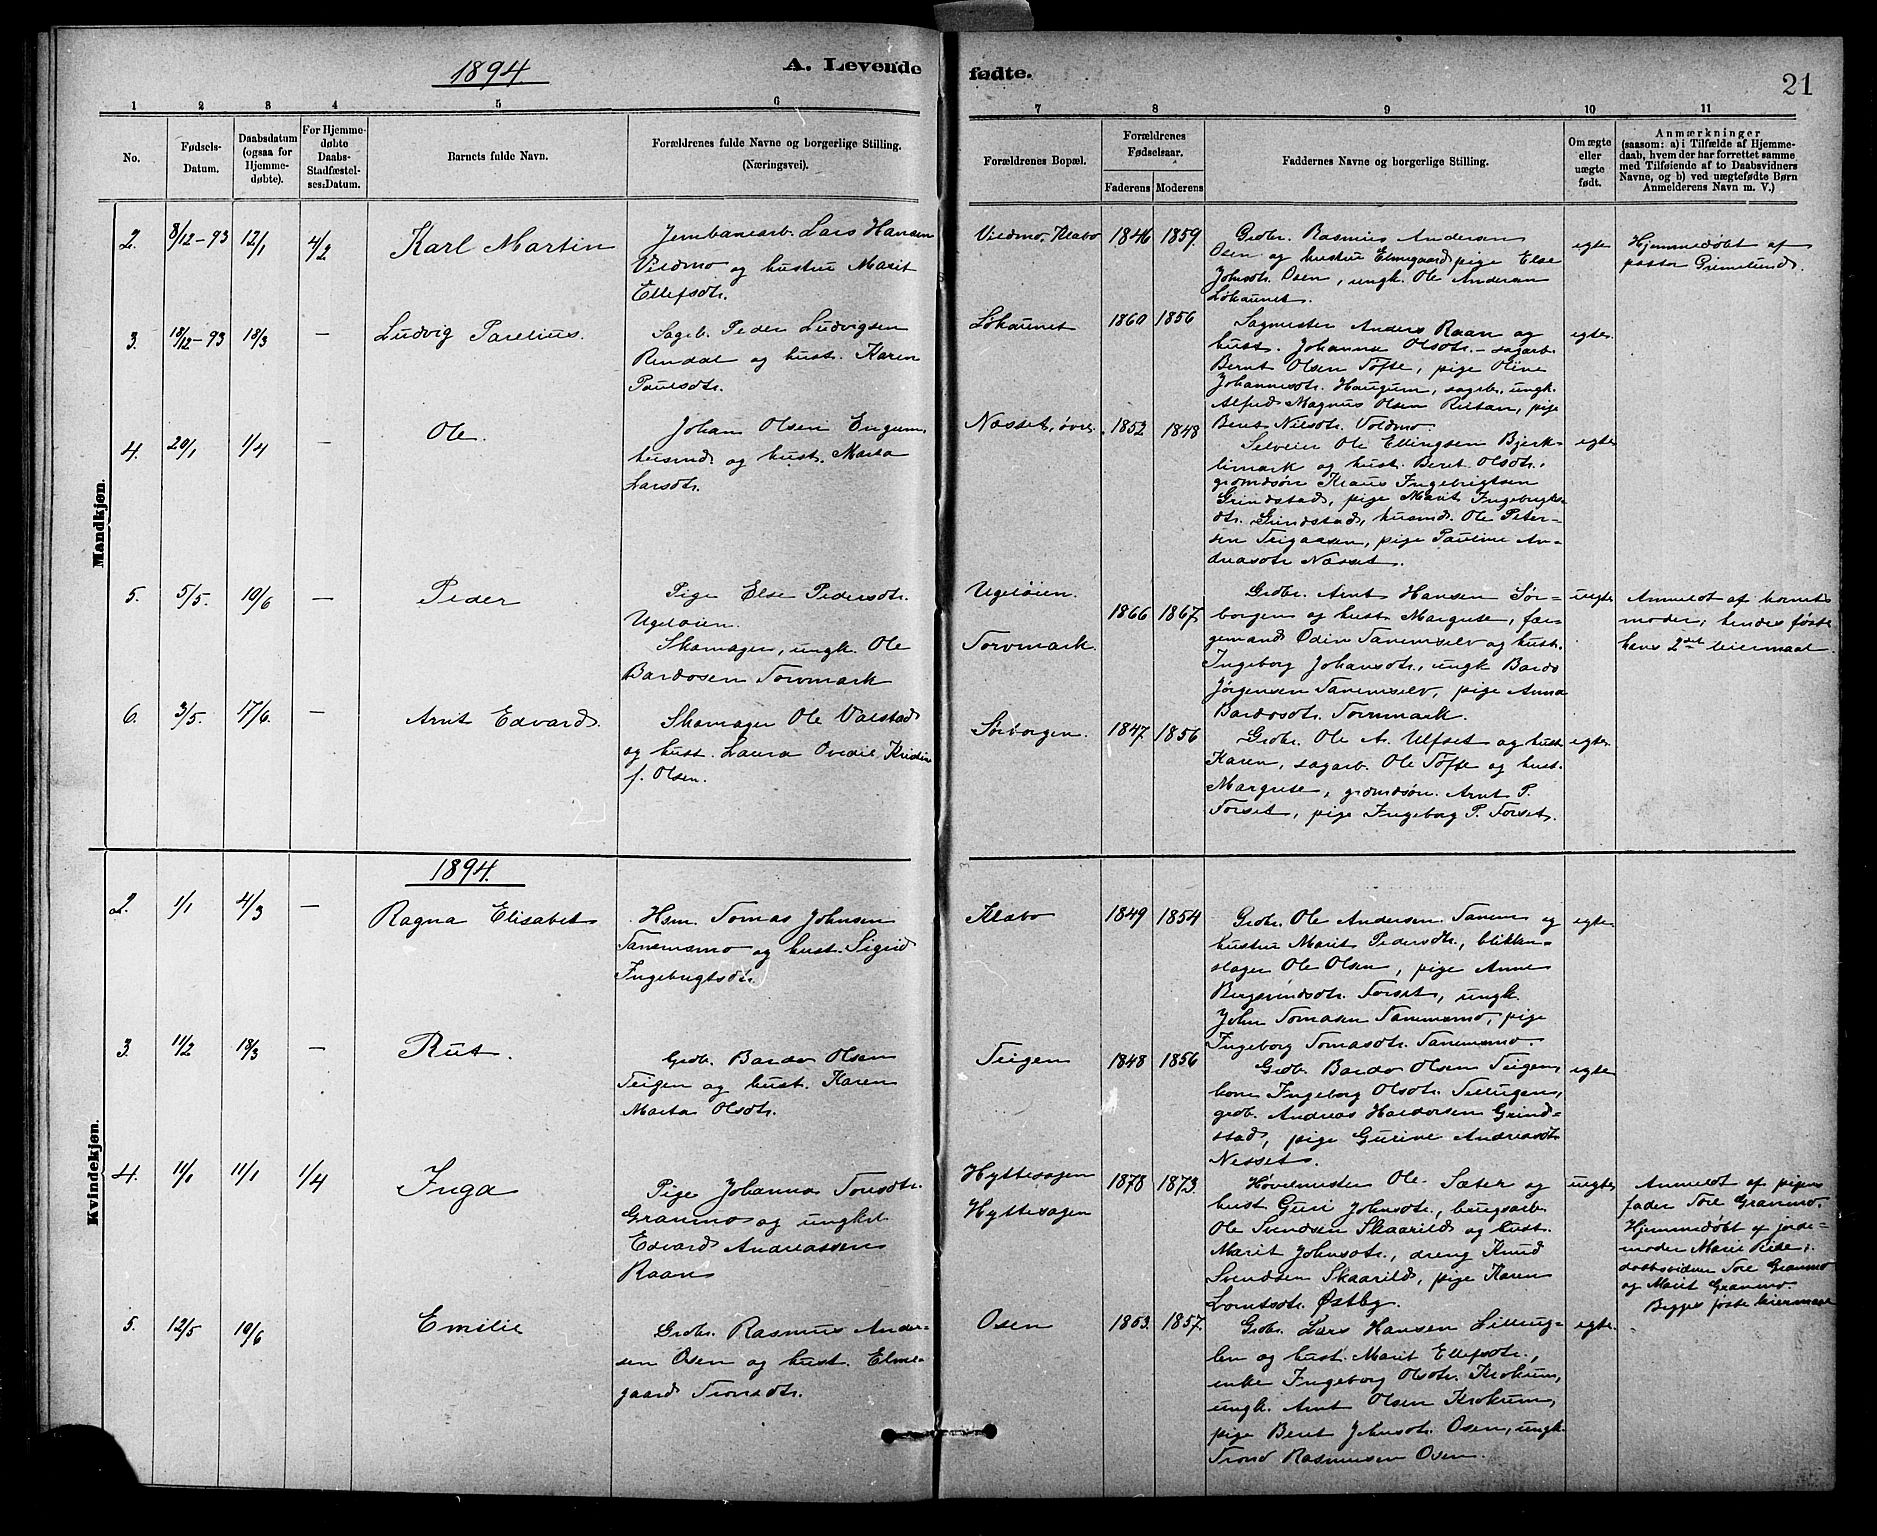 1894 A. Levende fødte. 21
1 2 3 4 5 6 7 8 9 10 11
No.
Fødsels-
Datum.
Daabsdatum
(ogsaa for
Hjemme-
døbte).
For Hjemme-
døbte
Daabs-
Stadfæstel-
ses-Datum.
Barnets fulde Navn.
Forældrenes fulde Navne og borgerlige Stilling.
(Næringsvei).
Forældrenes Bopæl.
Forældrenes
Fødselsaar.
Faderens Moderens
Faddernes Navne og borgerlige Stilling.
Om ægte
eller
uægte
født.
Anmærkninger
(saasom: a) i Tilfælde af Hjemme-
daab, hvem der har forrettet samme
med Tilføiende af to Daabsvidners
Navne, og b) ved uægtefødte Børn
Anmelderens Navn m. V.)
Mandkjøn.
2. 8/12-93 12/1 4/2 Karl Martin
Jernbanearb. Lars Hansen
Vildmo og hustru Marit
Ellefsdtr.
Vildmo, Klæbo 1846 1859
Grdbr. Rasmus Andersen
Osen og hustru Elmegaard, pige Else
Johnsdtr. Osen, ungk. Ole Andersen
Løkaunet.
egte
Hjemmedøbt af
pastor Grimelund.
3. 18/12-93 18/3 — Ludvig Parelius.
Sagb. Peder Ludvigsen
Rindal og hust. Karen
Paulsdtr.
Løkaunet 1860 1856
Sagmester Anders Raan og
hust. Johanna Olsdtr. – sagarb.
Bernt Olsen Tofte, pige Oline
Johannesdtr. Haugum, sagarb. ungk.
Alfred Magnus Olsen Reitan, pige
Beret Nilsdtr. Voldmo.
egte
4. 20/1 1/4 — Ole.
Johan Olsen Engum,
husmd. og hust. Marta
Larsdtr.
Næsset, øvre. 1852 1848
Selveier Ole Ellingsen Bjerk-
limark og hust. Beret Olsdtr.
grdmdsøn Klaus Ingebrigtsen
Grindstad, pige Marit Ingebrigts-
dtr. Grindstad, husmd. Ole Peter-
sen Teigaasen, pige Pauline An-
dreasdtr. Næsset.
egte
5. 5/5. 10/6 — Peder
Pige Else Pedersdtr.
Ugeløien.
Skomager, ungk. Ole
Bardosen Torvmark
Ugeløien.
Torvmark. 1866 1867
Grdbr. Arnt Hansen Sør-
borgen og hust. Margrete, fær-
gemand Odin Tanemselv og hust.
Ingeborg Johansdtr., ungk. Bardo
Jørgensen Tanemselv, pige Anna
Bardosdtr. Torvmark.
uegte
Anmeldt af barnets
moder, hendes første
hans 2det leiermaal.
6. 3/5. 17/6. — Arnt Edvard.
Skomager Ole Valstad
og hust. Laura Ovedie Kristine
f. Olsen.
Sørborgen. 1847 1856
Grdbr. Ole A. Ulfset og hust.
Karen, sagarb. Ole Tofte og hust.
Margrete, grdmdsøn. Arnt P.
Forset, pige Ingeborg P. Forset.
egte
Kvindekjøn.
1894.
2. 1/1 4/3 — Ragna Elisabet
Hsm. Tomas Johnsen
Tanemsmo og hust. Sigrid
Ingebrigtsdtr.
Klæbo 1849 1854
Grdbr. Ole Andersen Tanem og
hustru Marit Pedersdtr., blikken-
slager Ole Olsen, pige Anne
Bergsvendsdtr. Forset, ungk.
John Tomasen Tanemsmo, pige
Ingeborg Tomasdtr. Tanemsmo.
egte
3. 11/2 18/3 — Rut.
Grdb. Bardo Olsen
Teigen og hust. Karen
Marta Olsdtr.
Teigen 1848 1856
Grdb. Bardo Olsen Teigen,
kone Ingeborg Olsdtr. Tellugen,
grdb. Andreas Haldorsen Grind-
stad, pige Gurine Andreasdtr.
Nesset.
egte
4. 11/1 11/1 1/4 Inga
Pige Johanna Toresdtr.
Granmo og ungkrl.
Edvard Andreassen
Raan
Hyttesagen
Hyttesagen 1878 1873
Høvelmester Ole Sæter og
hust. Guri Johnsdtr., brugsarb.
Ole Svendsen Skaarild og hust.
Marit Johnsdtr., dreng Knud
Svendsen Skaarild, pige Karen
Lorntsdtr. Østby.
uegte
Anmeldt af pigens
fader Tore Granmo.
Hjemmedøbt af jorde-
moder Marie Ride;
daabsvidner Tore Granmo
og Marit Granmo.
Begges første leiermaal
5. 12/5 10/6 Emilie
Grdbr. Rasmus Ander-
sen Osen og hust. Elme-
gaard Tronsdtr.
Osen 1863. 1857.
Grdbr. Lars Hansen Lilleug-
len og hust. Marit Ellefsdtr.,
enke Ingeborg Olsdtr. Krokum,
ungk. Arnt Olsen Krokum,
pige Beret Johnsdtr. Osen, ungk.
Trond Rasmussen Osen.
egte.